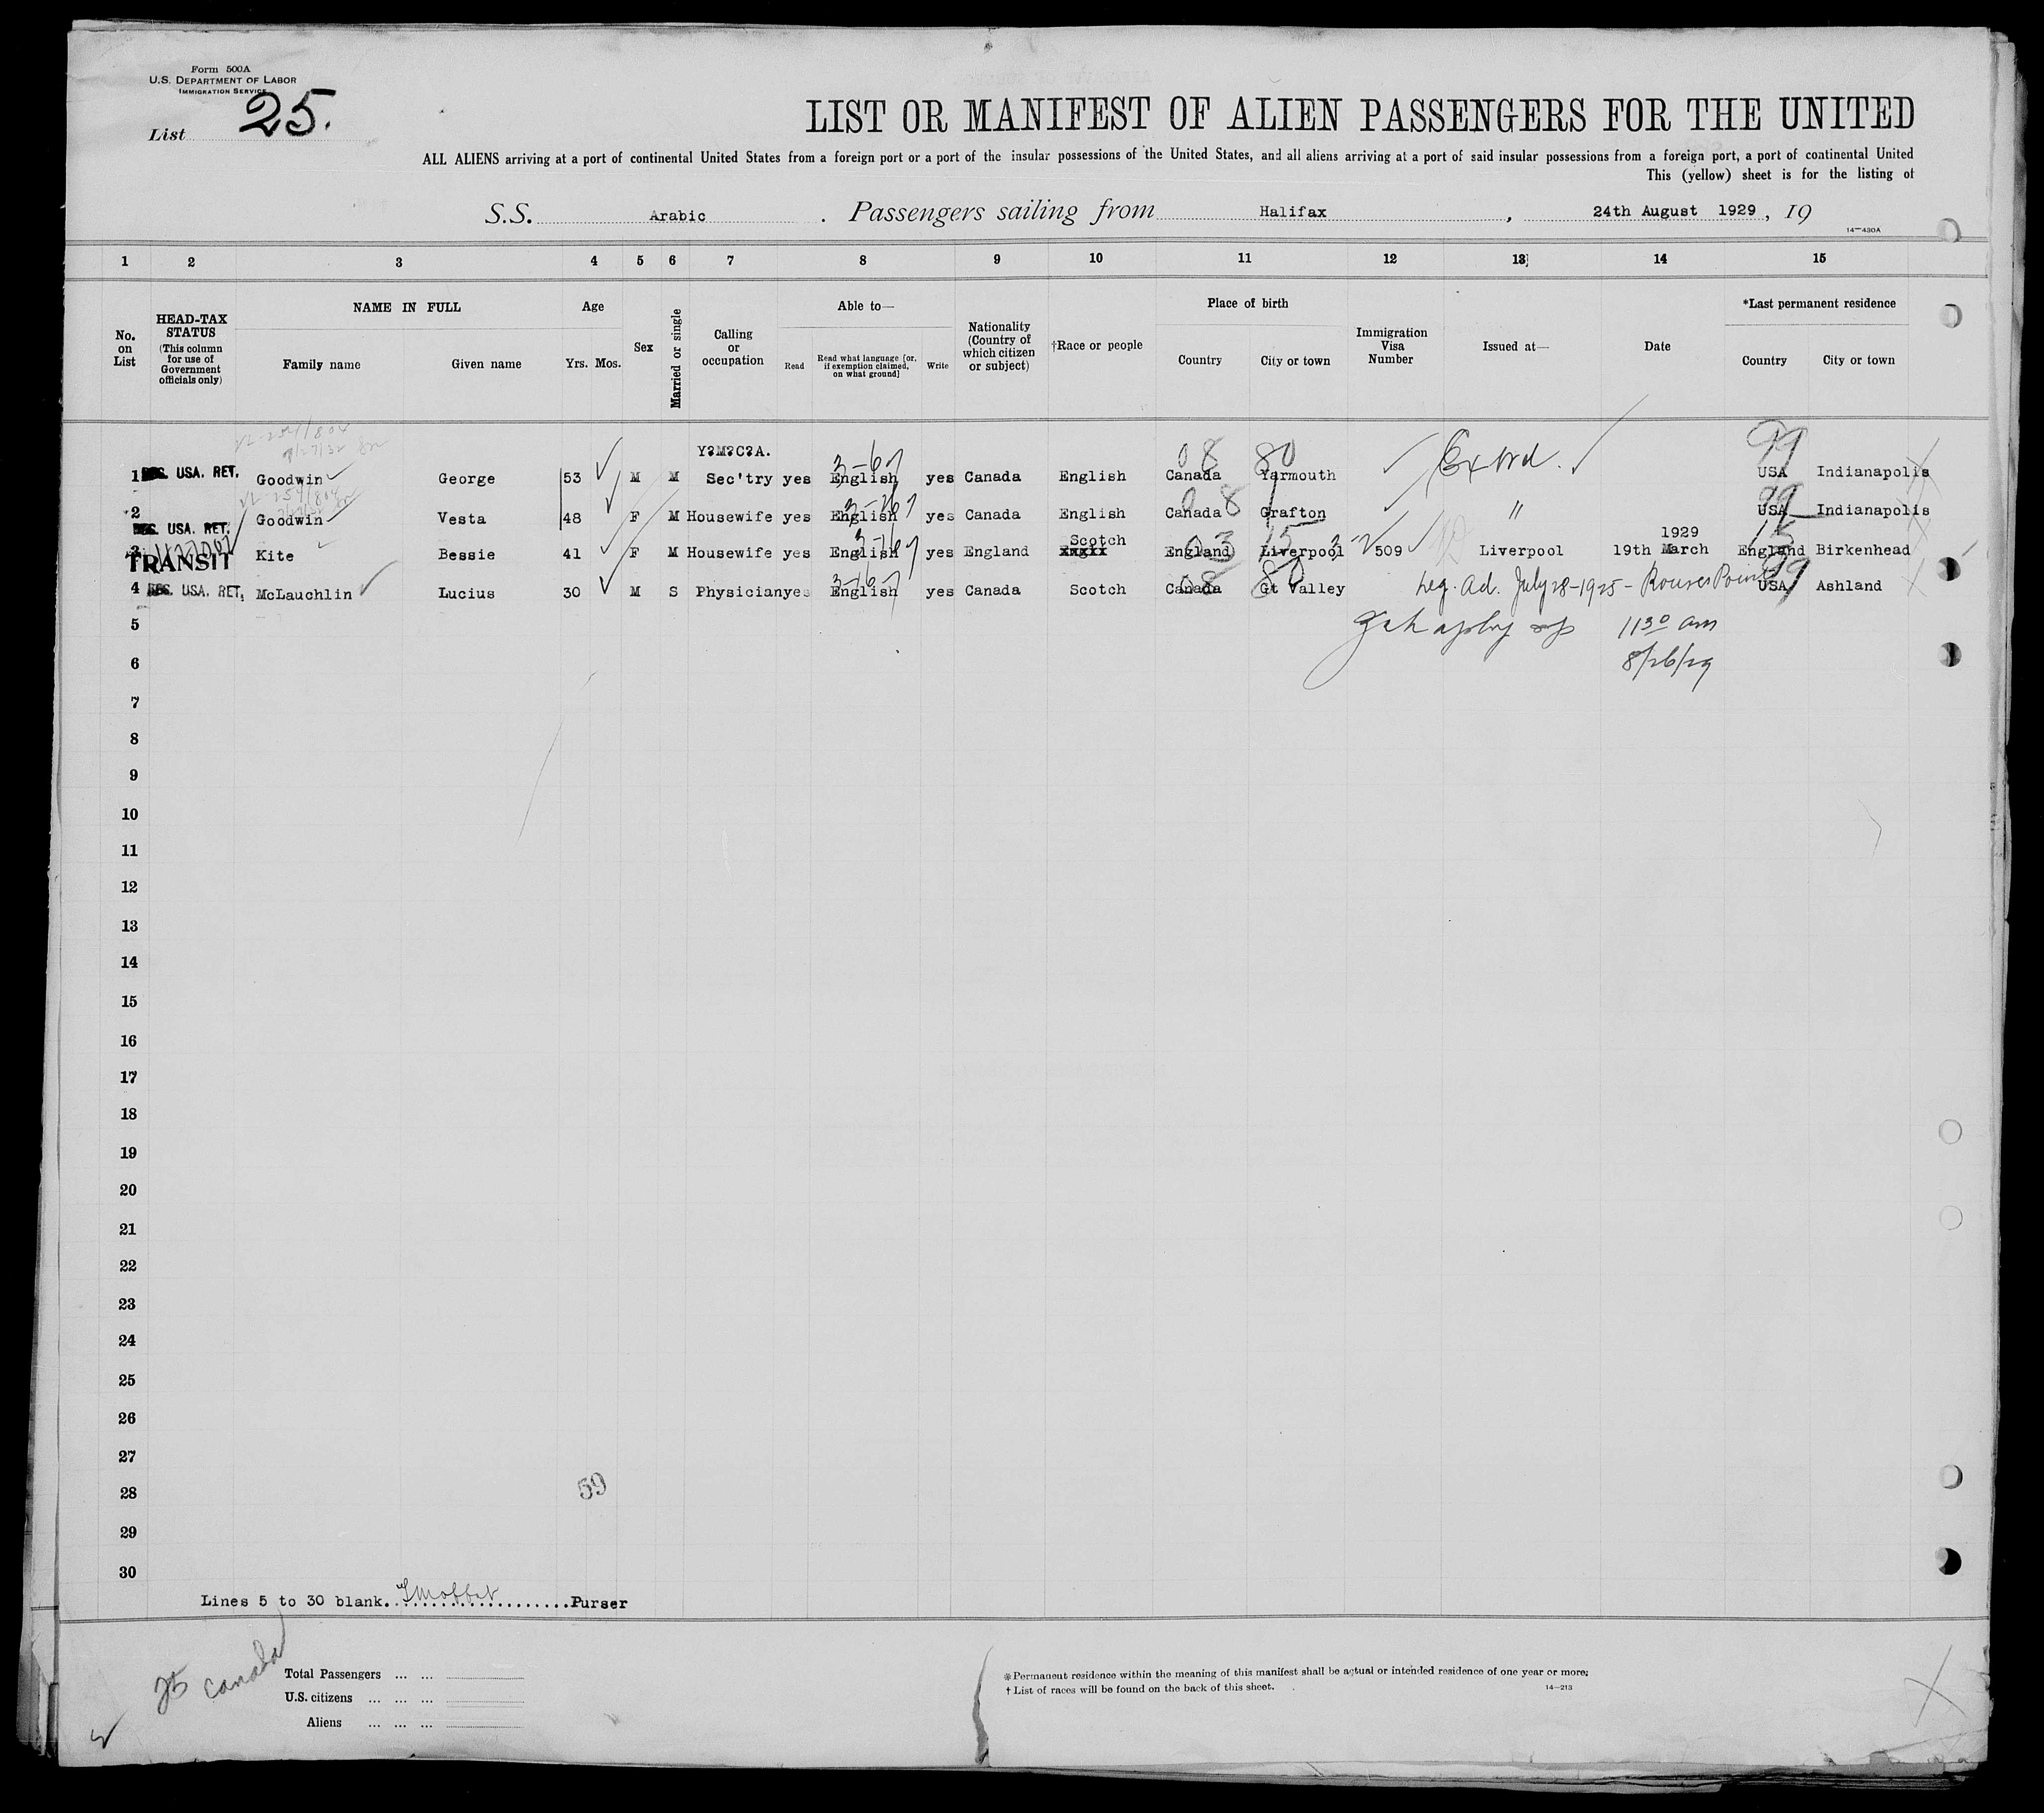 Form 500A
U.S. DEPARTMENT OF LABOR
IMMIGRATION SERVICE
List 25.
LIST OR MANIFEST OF ALIEN PASSENGERS FOR THE UNITED
ALL ALIENS arriving at a port of continental United States from a foreign port or a port of the insular possessions of the United States, and all aliens arriving at a port of said insular possessions from a foreign port, a port of continental United
This (yellow) sheet is for the listing of
S.S. Arabic . Passengers sailing from Halifax , 24th August 1929 , 19
14—430A
1 2 3 4 5 6 7 8 9 10 11 12 13 14 15
No. on List
HEAD-TAX STATUS (This column for use of Government officials only)
NAME IN FULL
Family name Given name
Age
Yrs. Mos.
Sex
Married or single
Calling or occupation
Able to—
Read Read what language [or, if exemption claimed, on what ground] Write
Nationality (Country of which citizen or subject)
†Race or people
Place of birth
Country City or town
Immigration Visa Number
Issued at—
Date
*Last permanent residence
Country City or town
Y?M?C?A. 3-67 08 80 99
1 USA. RET. Goodwin George 53 M M Sec'try yes English yes Canada English Canada Yarmouth USA Indianapolis
2 USA. RET. Goodwin Vesta 48 F M Housewife yes English yes Canada English Canada Grafton " USA Indianapolis
Scotch 1929
3 TRANSIT Kite Bessie 41 F M Housewife yes English yes England England Liverpool 509 Liverpool 19th March England Birkenhead
4 USA. RET. McLauchlin Lucius 30 M S Physician yes English yes Canada Scotch Canada Gt Valley Leg. Ad. July 28-1925 - Rouses Point USA Ashland
5 11 30 am
6 8/26/29
7
8
9
10
11
12
13
14
15
16
17
18
19
20
21
22
23
24
25
26
27
28 59
29
30
Lines 5 to 30 blank. Moffet Purser
25 Canada
Total Passengers ... ...
U.S. citizens ... ... ...
Aliens ... ... ...
* Permanent residence within the meaning of this manifest shall be actual or intended residence of one year or more.
† List of races will be found on the back of this sheet.
14—213